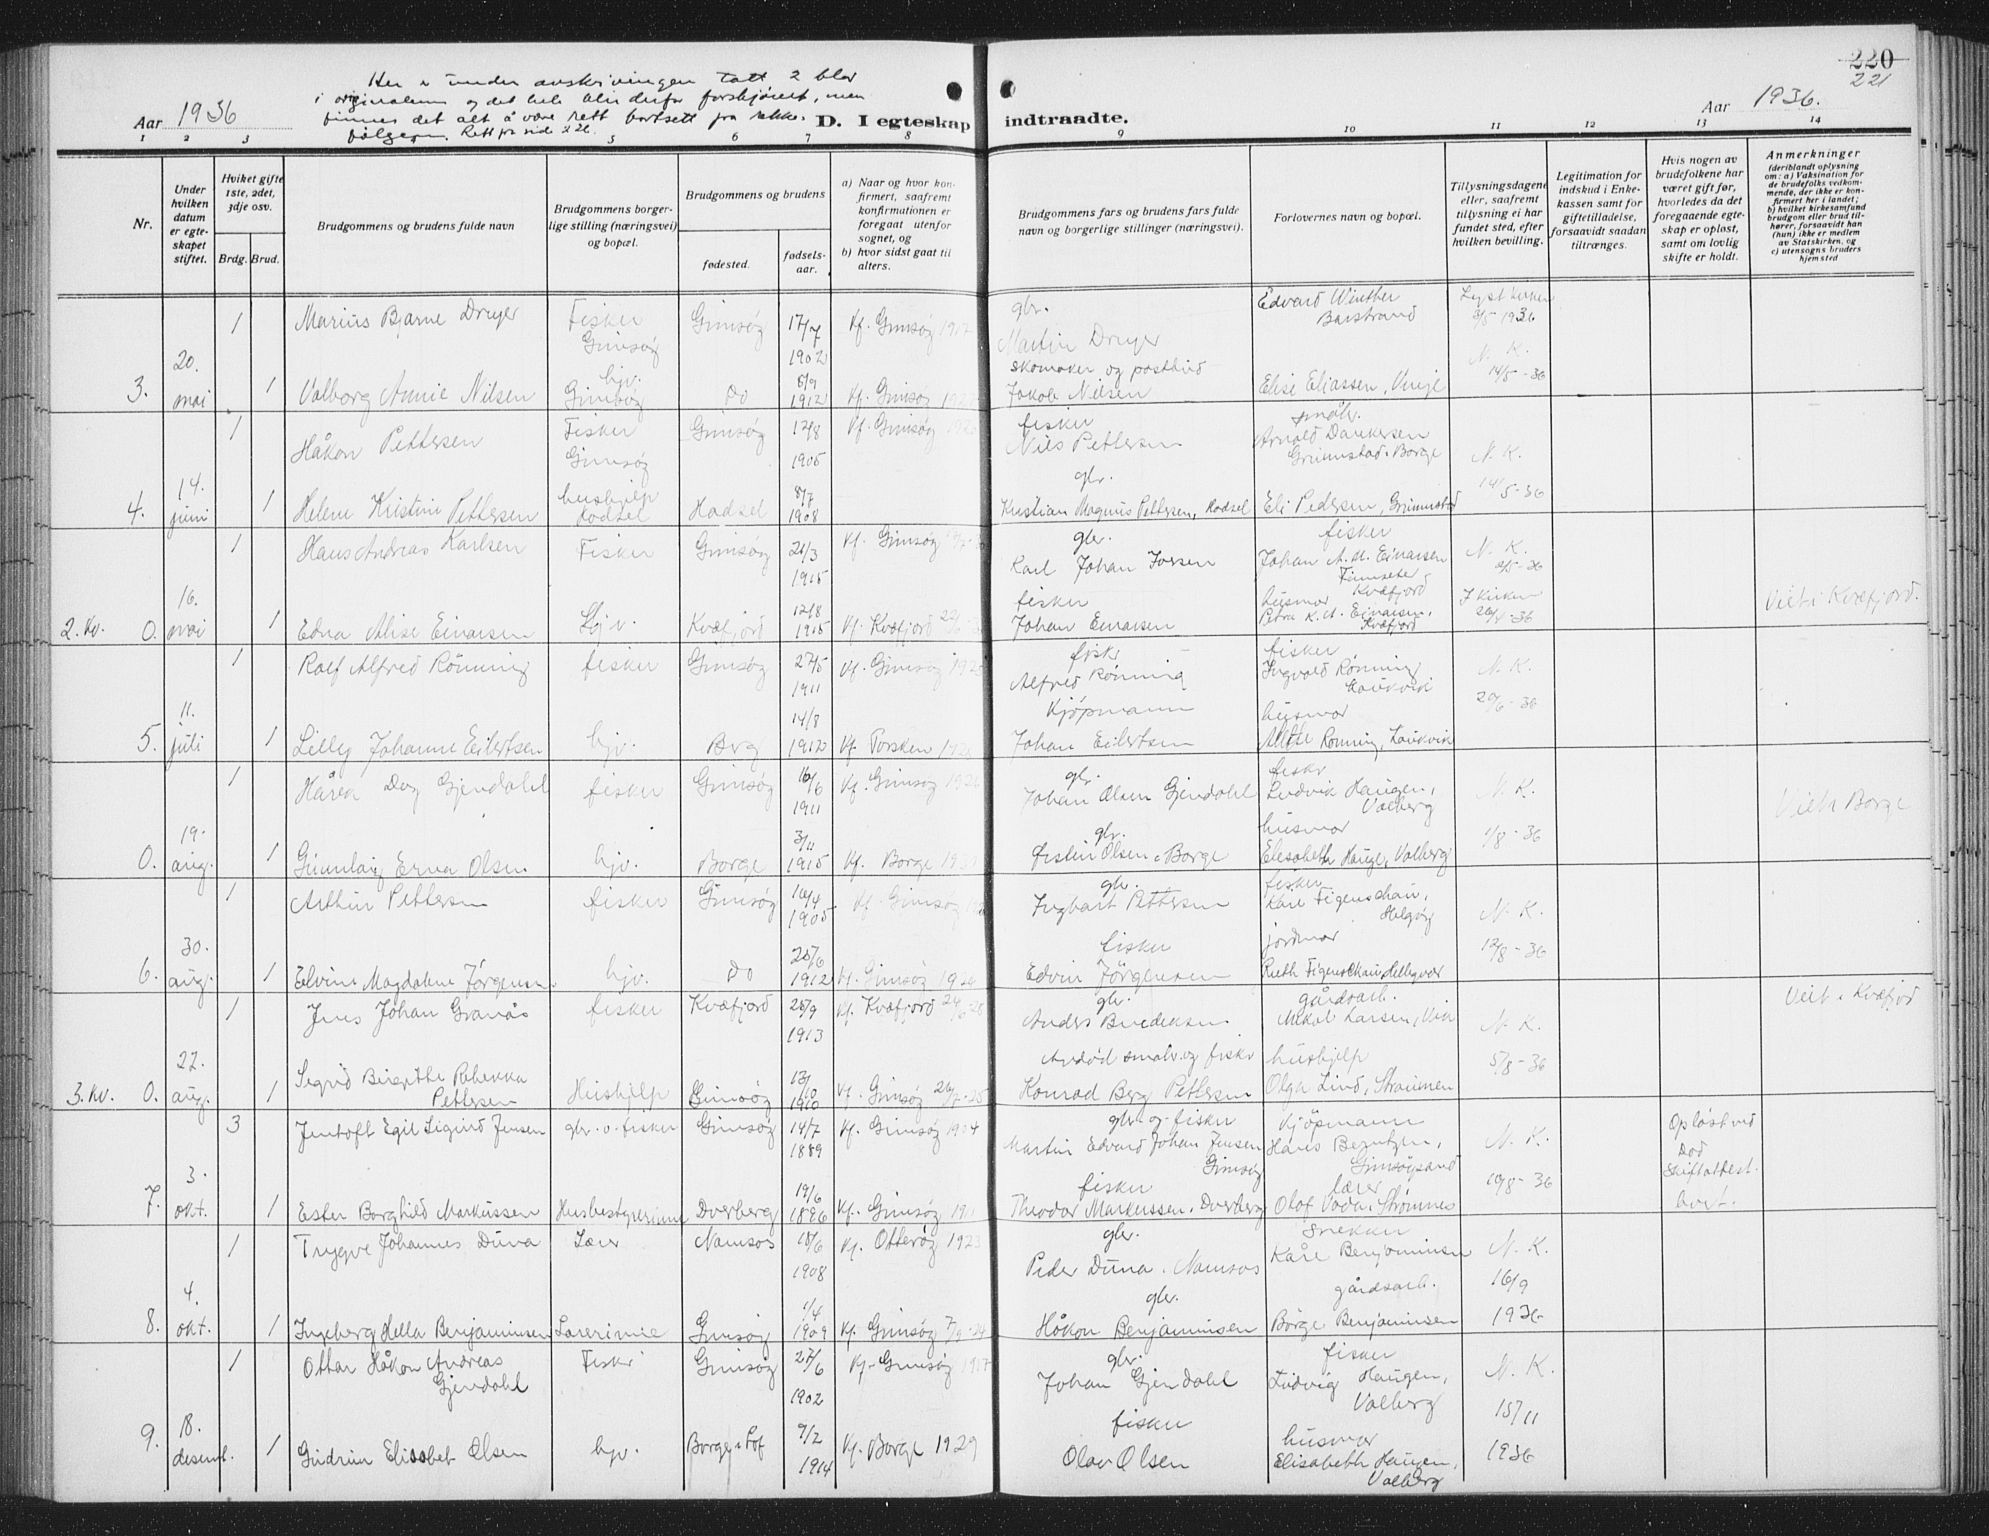 Her er under avskrivingen tatt 2 blar
i originalen og det hele blir derfor forskjövet, men
finnes det alt å være rett bortsett fra rekke-
følgen. Rett fra side 226.
Aar 1936
D. I egteskap indtraadte.
Aar 1936.
220
221
1 2 3 5 6 7 8 9 10 11 12 13 14
Nr.
Under hvilken datum er egteskapet stiftet.
Hviket gifte 1ste, 2det, 3dje osv.
Brdg. Brud.
Brudgommens og brudens fulde navn
Brudgommens borgerlige stilling (næringsvei) og bopæl.
Brudgommens og brudens
fødested.
fødselsaar.
a) Naar og hvor konfirmert, saafremt konfirmationen er foregaat utenfor sognet, og
b) hvor sidst gaat til alters.
Brudgommens fars og brudens fars fulde navn og borgerlige stillinger (næringsvei).
Forlovernes navn og bopæl.
Tillysningsdagene eller, saafremt tillysning ei har fundet sted, efter hvilken bevilling.
Legitimation for indskud i Enkekassen samt for giftetilladelse, forsaavidt saadan tiltrænges.
Hvis nogen av brudefolkene har været gift før, hvorledes da det foregaaende egteskap er opløst, samt om lovlig skifte er holdt.
Anmerkninger
(deriblandt oplysning om: a) Vaksination for de brudefolks vedkommende, der ikke er konfirmert her i landet;
b) hvilket kirkesamfund brudgom eller brud tilhører, forsaavidt han (hun) ikke er medlem av Statskirken, og
c) utensogns bruders hjemsted
1 Marius Bjarne Dreyer Fisker Gimsøy Gimsøy 17/7 1902 kf. Gimsøy 1917 gbr. Martin Dreyer Edvard Winther Barstrand Lyst kirken 3/5 1936
3. 20. mai 1 Valborg Annie Nilsen hjv. Gimsøy Do 8/9 1912 kf. Gimsøy skomaker og postbud Jakob Nilsen Elise Eliassen, Vinje N. K. 14/5-36
1 Håkon Pettersen Fisker Gimsøy Gimsøy 12/8 1905 kf. Gimsøy 1920 fisker Nils Pettersen småbr. Arnold Danielsen Grimstad i Borge N. K.
4. 14. juni 1 Helene Kristine Pettersen hushjelp Hadsel Hadsel 8/7 1908 gbr. Kristian Magnus Pettersen, Hadsel Eli Pedersen, Grimstad 14/5-36
1 Hans Andreas Karlsen Fisker Gimsøy 21/3 1915 kf. Gimsøy gbr. Karl Johan Iversen fisker Johan A. M. Einarsen Finnsæter Kvæfjord N. K.
2. Kv. 0. 16. mai 1 Edna Alise Einarsen hjv. Kvæfjord 12/8 1915 kf. Kvæfjord fisker Johan Einarsen husmor Petra K. M. Einarsen, Kvæfjord I Kirken 26/4-36 Viet i Kvæfjord.
1 Rolf Alfred Rönning fisker Gimsøy 27/5 1911 kf. Gimsøy 1925 fisker Alfred Rönning fisker Ingvald Rönning Laukvik N. K. 20/6-36
5. 11. juli 1 Lilly Johanne Eilertsen hjv. Berg 14/8 1912 kf. Torsken Kjöpmann Johan Eilertsen husmor Rönning, Laukvik
1 Håren Dag Gjendahl fisker Gimsøy 16/6 1911 kf. Gimsøy 1926 gbr. Johan Olsen Gjendahl fisker Ludvik Haugen, Valberg N. K.
0. 19. aug. 1 Gunnlaug Erna Olsen hjv. Borge 3/11 1915 kf. Borge gbr. Olsen i Borge husmor Elisabeth Hauge, Valberg 1/8-36 Viet i Borge
1 Arthur Pettersen fisker Gimsøy 16/4 1905 kf. Gimsøy gbr. Ingbart Pettersen fisker Kåre Figenschau, Helgøy N. K.
6. 30. aug. 1 Elvine Magdalene Jørgensen hjv. Do 20/6 1912 kf. Gimsøy 1926 fisker Edvin Jørgensen jordmor Ruth Figenschau, Hellegvær 12/8-36
1 Jens Johan Granås fisker Kvæfjord 28/9 1913 kf. Kvæfjord 24/6-28 gbr. Anders Benediksen gårdsarb. Mikal Larsen, Vik N. K. Viet i Kvæfjord
3. Kv. 0. 22. aug. 1 Sigrid Birgithe Rebekka Pettersen Hushjelp Gimsøy 13/10 1910 kf. Gimsøy 26/7-25 Avdød småbr. og fisker Konrad Berg Pettersen hushjelp Olga Lind, Straumen 5/8-36
3 Jentoft Egil Sigurd Jensen gbr. o. fisker Gimsøy 14/7 1889 kf. Gimsøy 1904 gbr. og fisker Martin Edvard Johan Jensen Gimsøy Kjöpmann Hans Berntzen, Gimsøysand N. K. Opløst ved Død Skifteattest
7. 3. okt. 1 Ester Borghild Markussen Husbestyrerinne Dverberg 19/6 1896 kf. Gimsøy fisker Theodor Markussen, Dverberg lærer Olof Voda, Strømnes 19/8-36
1 Trygve Johannes Duna Lærer Namsos 18/6 1908 kf. Otterøy 1923 gbr. Peder Duna, Namsos snekker Kåre Benjaminsen N. K.
8. 4. okt. 1 Ingeborg Hella Benjaminsen Lærerinne Gimsøy 1/4 1909 kf. Gimsøy 7/9-24 gbr. Håkon Benjaminsen gårdsarb. Börge Benjaminsen 16/9 1936
1 Ottar Håkon Andreas Gjendahl Fisker Gimsøy 27/6 1902 kf. Gimsøy 1917 gbr. Johan Gjendahl fisker Ludvig Haugen, Valberg N. K.
9. 18. desemb. 1 Gudrun Elisabet Olsen hjv. Borge i Lof 9/2 1914 kf. Borge 1929 fisker Olav Olsen husmor Elisabeth Haugen, Valberg 15/11 1936